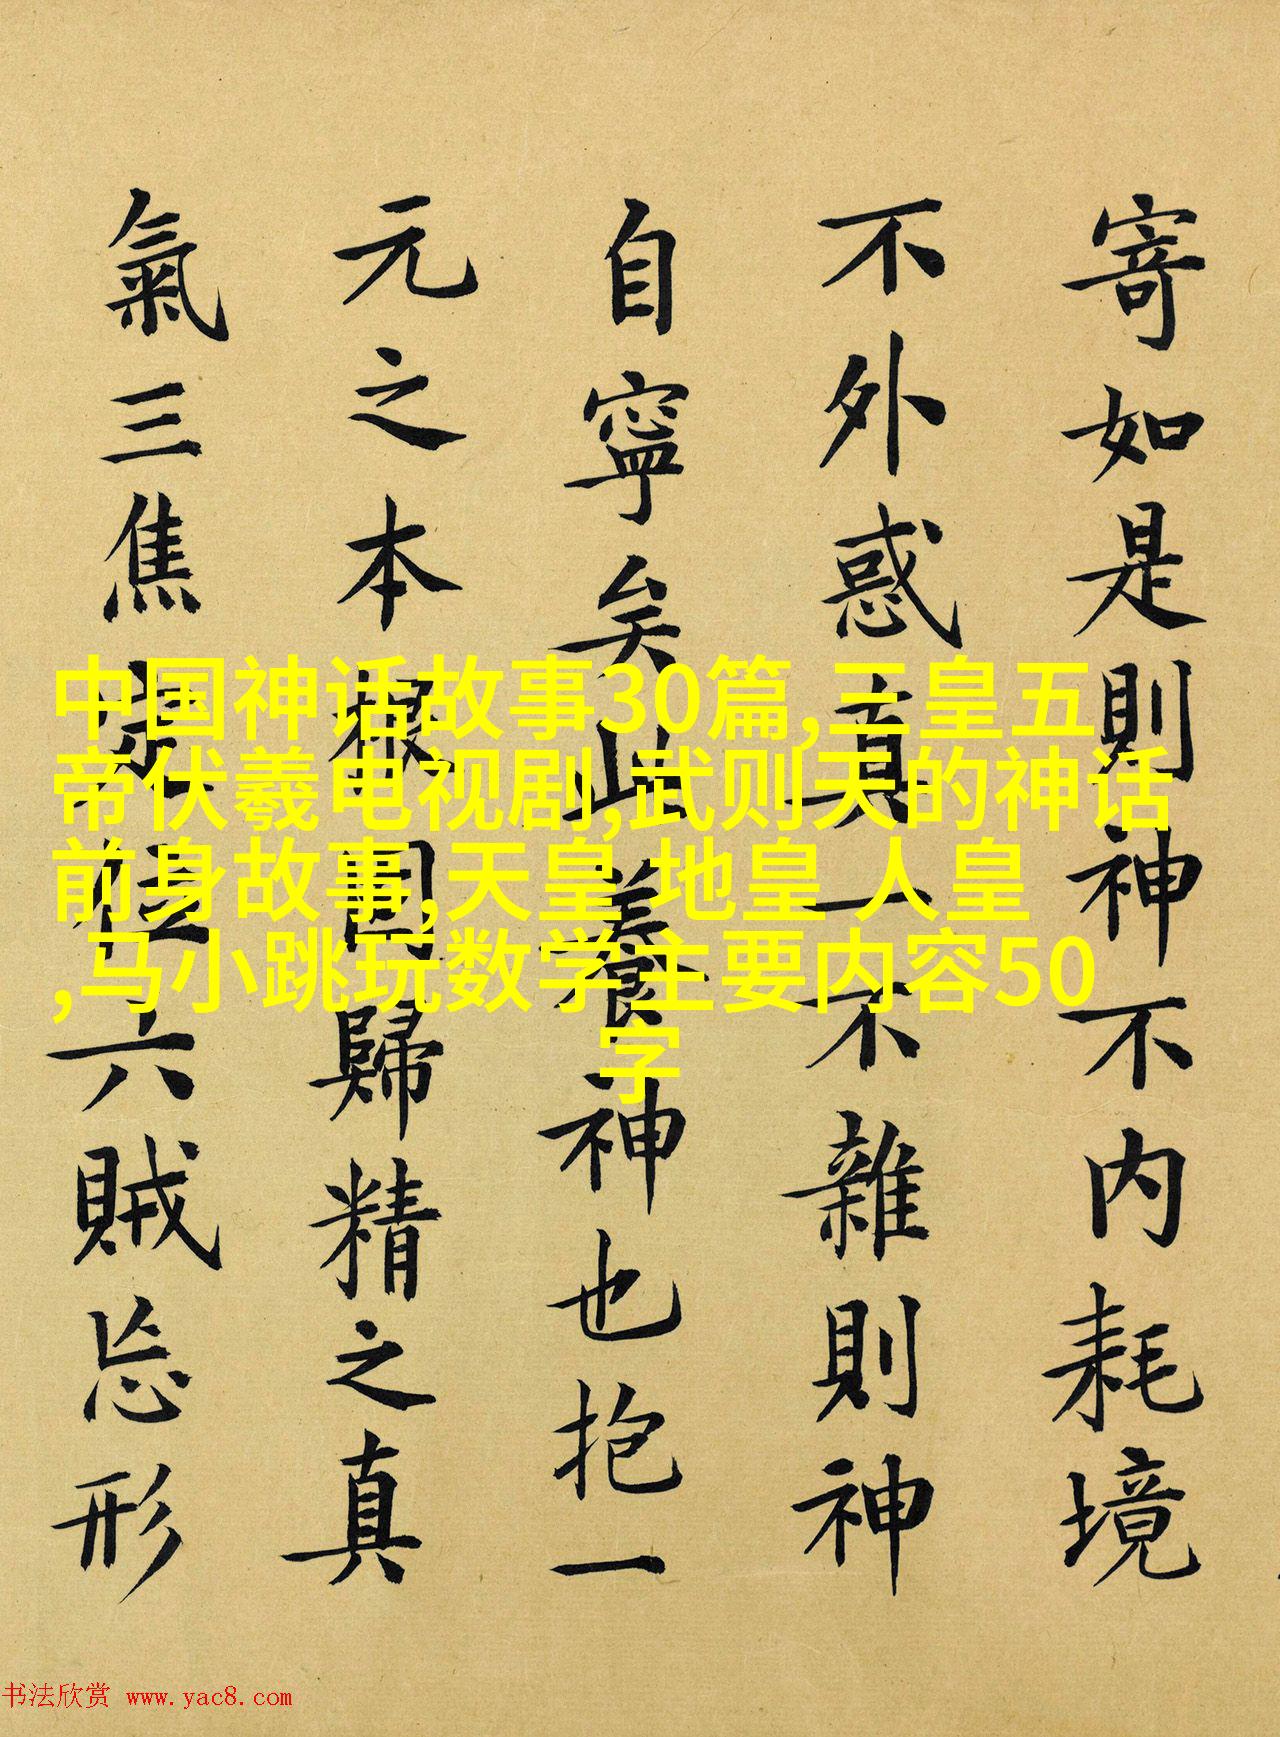 寄如是則神不内耗境
不外惑真一不雜則神
自寧矣此養神也抱一
元之本根固歸精之真
氣三焦定位六賊忘形
中国神话故事30篇,三皇五
帝伏羲电视剧,武则天的神话
前身故事,天皇 地皇 人皇
,马小跳玩数学主要内容50
字
书法欣赏 www.yac8.com